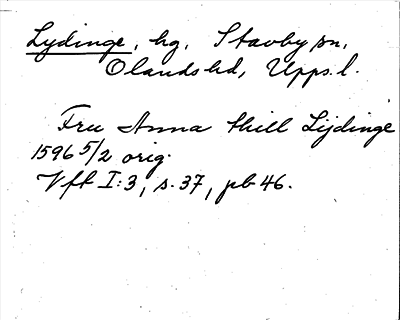 Lydinge, hg, Stavby sn,
Olands hd, Upps. l.
Fru Anna thill Lijdinge
1596 5/2 orig.
Vft I:3, s. 37, pb 46.